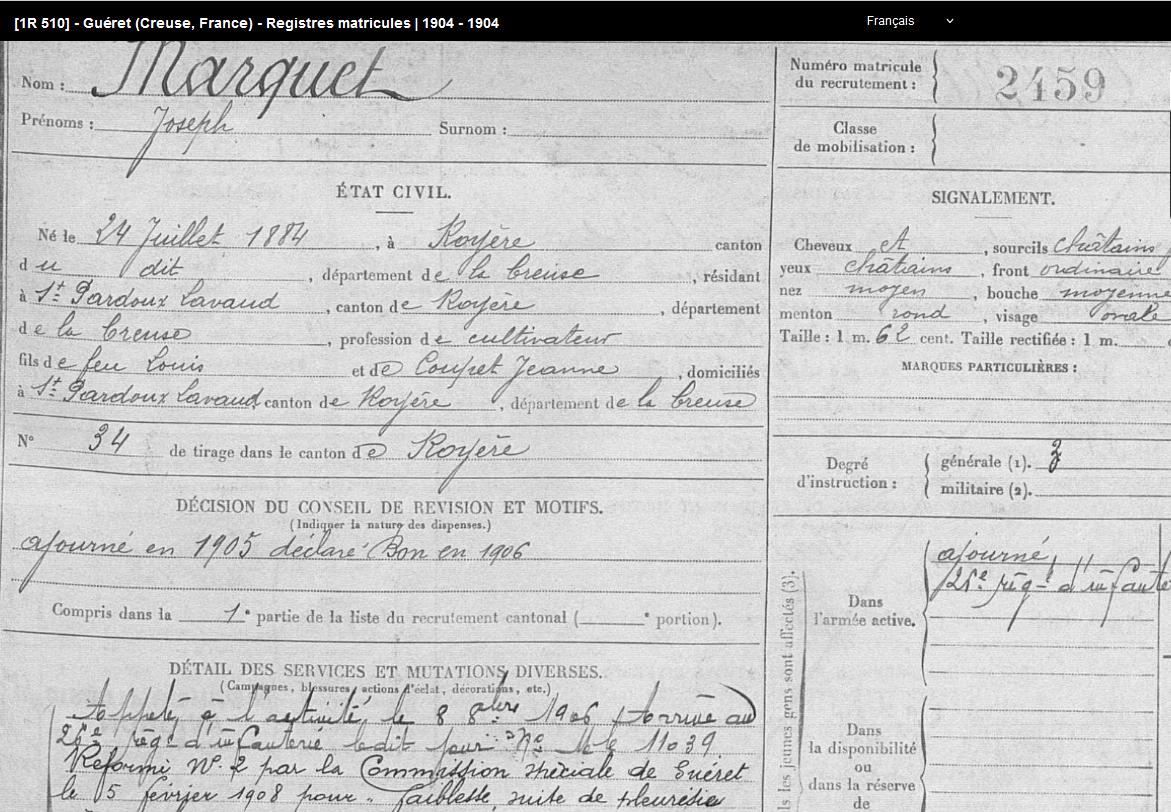 [1R 510] - Guéret (Creuse, France) - Registres matricules | 1904 - 1904
Français
Nom : Marquet
Prénoms : Joseph Surnom :
ÉTAT CIVIL.
Né le 24 Juillet 1884, à Royère canton
du dit, département de la Creuse, résidant
à St Pardoux Lavaud, canton de Royère, département
de la Creuse, profession de cultivateur
fils de feu Louis et de Coupet Jeanne, domiciliés
à St Pardoux Lavaud, canton de Royère, département de la Creuse
N° 34 de tirage dans le canton de Royère
DÉCISION DU CONSEIL DE REVISION ET MOTIFS.
(Indiquer la nature des dispenses.)
ajourné en 1905 déclaré Bon en 1906
Compris dans la 1e partie de la liste du recrutement cantonal ( e portion).
DÉTAIL DES SERVICES ET MUTATIONS DIVERSES.
(Campagnes, blessures, actions d'éclat, décorations, etc.)
Appelé à l'activité, le 8 8bre 1906, arrivé au
d'infanterie ledit jour. No Mle 11039.
Réformé N° 2 par la Commission spéciale de Guéret
le 5 février 1908 pour " faiblesse, suite de pleurésie
Numéro matricule
du recrutement : 2459
Classe
de mobilisation :
SIGNALEMENT.
Cheveux et, sourcils châtains
yeux châtains, front ordinaire
nez moyen, bouche moyenne
menton rond, visage ovale
Taille : 1 m. 62 cent. Taille rectifiée : 1 m. c
MARQUES PARTICULIÈRES :
Degré
d'instruction :
générale (1). 3
militaire (2).
ls les jeunes gens sont affectés (3).
Dans
l'armée active.
ajourné
d'infante
Dans
la disponibilité
ou
dans la réserve
de